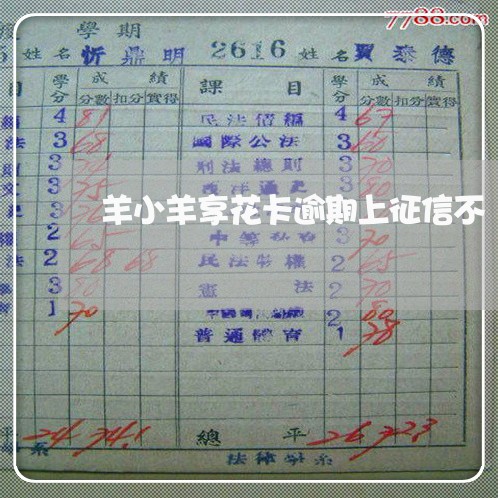 7788.com
學期
姓名 忻鼎明 2616 姓名 賈泰德
目 學分 成績 課目 學分 成績
分數 扣分 實得 分數 扣分 實得
4 81 民法債編 4 67
法 3 68 國際公法 3 60
3 刑法總則 3 70
3 75 西洋通史 3 80
羊小羊享花卡逾期上征信不
2 65 3 70
法 2 68 68 民法物權 2 65
3 80 憲法 2 70
1 70 2 80
普通體育 1 78
平 24 74.1 總平 26 72.3
系 法律學系